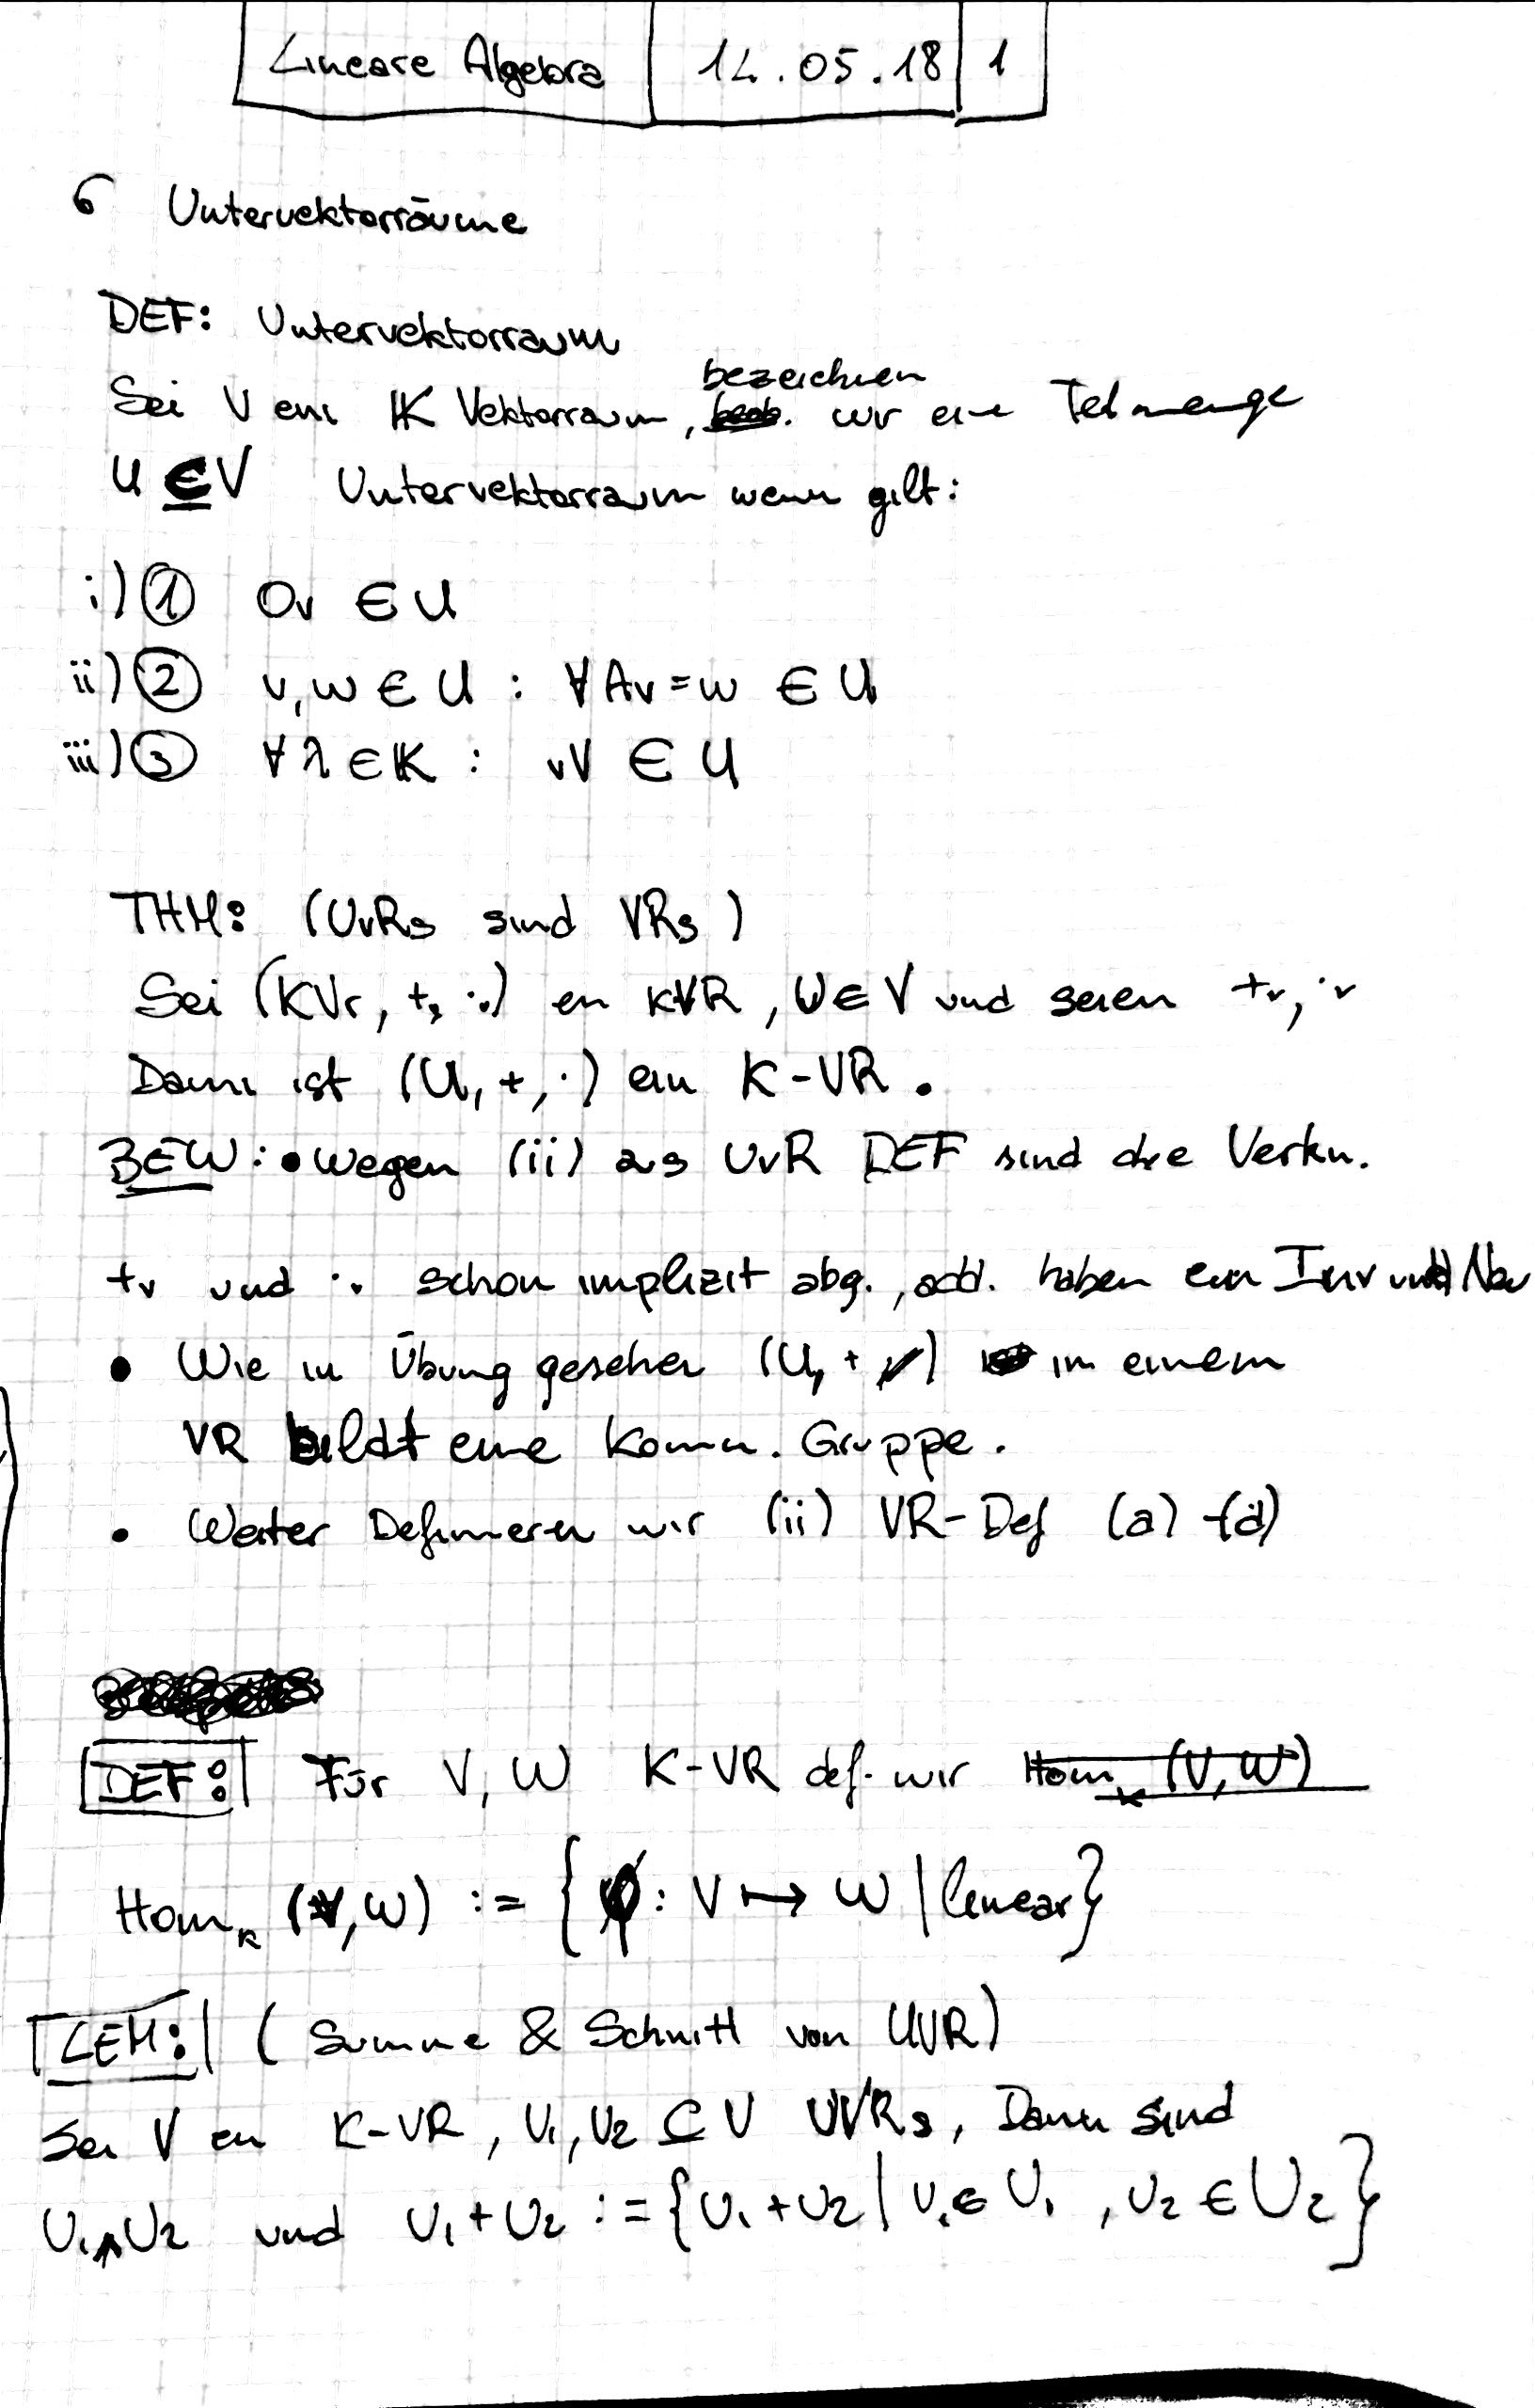 Lineare Algebra | 14.05.18 | 1
6 Untervektorräume
DEF: Untervektorraum
bezeichnen
Sei V ein K Vektorraum, wir eine Teilmenge
U ⊆ V Untervektorraum wenn gilt:
i) ① 0v ∈ U
ii) ② v, w ∈ U : ∀ Av = w ∈ U
iii) ③ ∀ λ ∈ K : vV ∈ U
THM: (UvRs sind VRs)
Sei (KVr, +, ·v) en KVR, U ∈ V und seien +v, ·v
Dann ist (U, +, ·) ein K-VR.
BEW: • Wegen (iii) aus UvR DEF sind die Verkn.
+v und ·v schon implizit abg., add. haben ein Inv und Neu
• Wie in Übung gesehen (U, +) in einem
VR bildt eine komm. Gruppe.
• Weiter Definieren wir (ii) VR-Def (a) - (d)
DEF: Für V, W K-VR def. wir Hom_K (V, W)
Hom_K (V, W) := { ϕ : V ↦ W | linear }
LEM: ( Summe & Schnitt von UVR)
Sei V en K-VR, U₁, U₂ ⊆ V UVRs, Dann sind
U₁ ∩ U₂ und U₁ + U₂ := { U₁ + U₂ | U₁ ∈ U₁, U₂ ∈ U₂ }